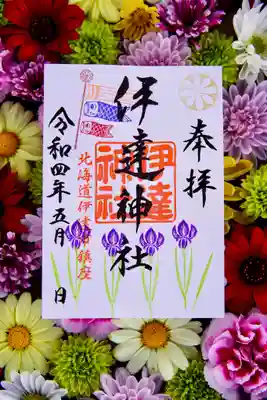 奉拝
伊達神社
伊達神社
北海道伊達市鎮座
令和四年五月 日